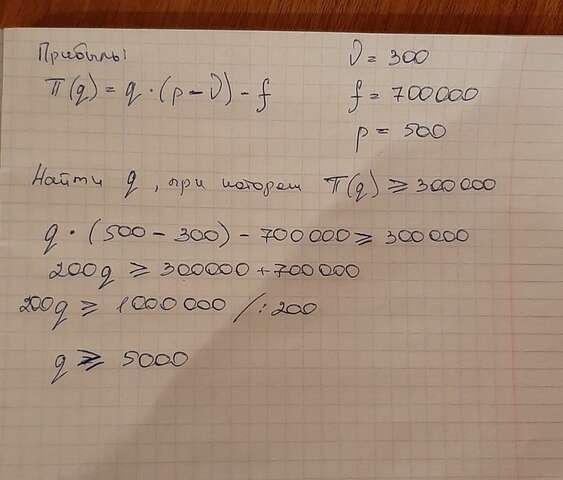 Прибыль:
π(q) = q · (p − ν) − f
ν = 300
f = 700000
p = 500
Найти q, при котором π(q) ≥ 300000
q · (500 − 300) − 700000 ≥ 300000
200q ≥ 300000 + 700000
200q ≥ 1000000 /:200
q ≥ 5000